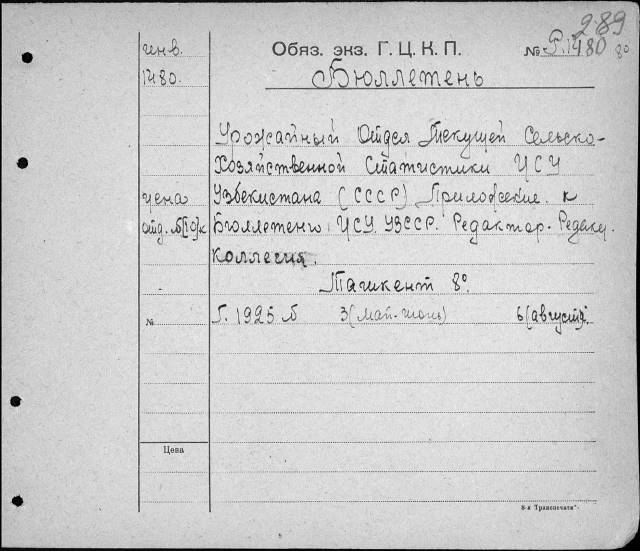 289
инв. Обяз. экз. Г. Ц. К. П. № Р. 1480 8°
1480. Бюллетень
Урожайный Отдел Текущей Сельско-
Хозяйственной Статистики ЦСУ
цена Узбекистана (СССР) Приложение к
отд. № [10] к Бюллетеню ЦСУ УзССР. Редактор - Редакц.
коллегия.
Ташкент 8°.
№ Г. 1925 № 3 (май-июнь) 6 (август).
Цена
8-я "Транспечати"